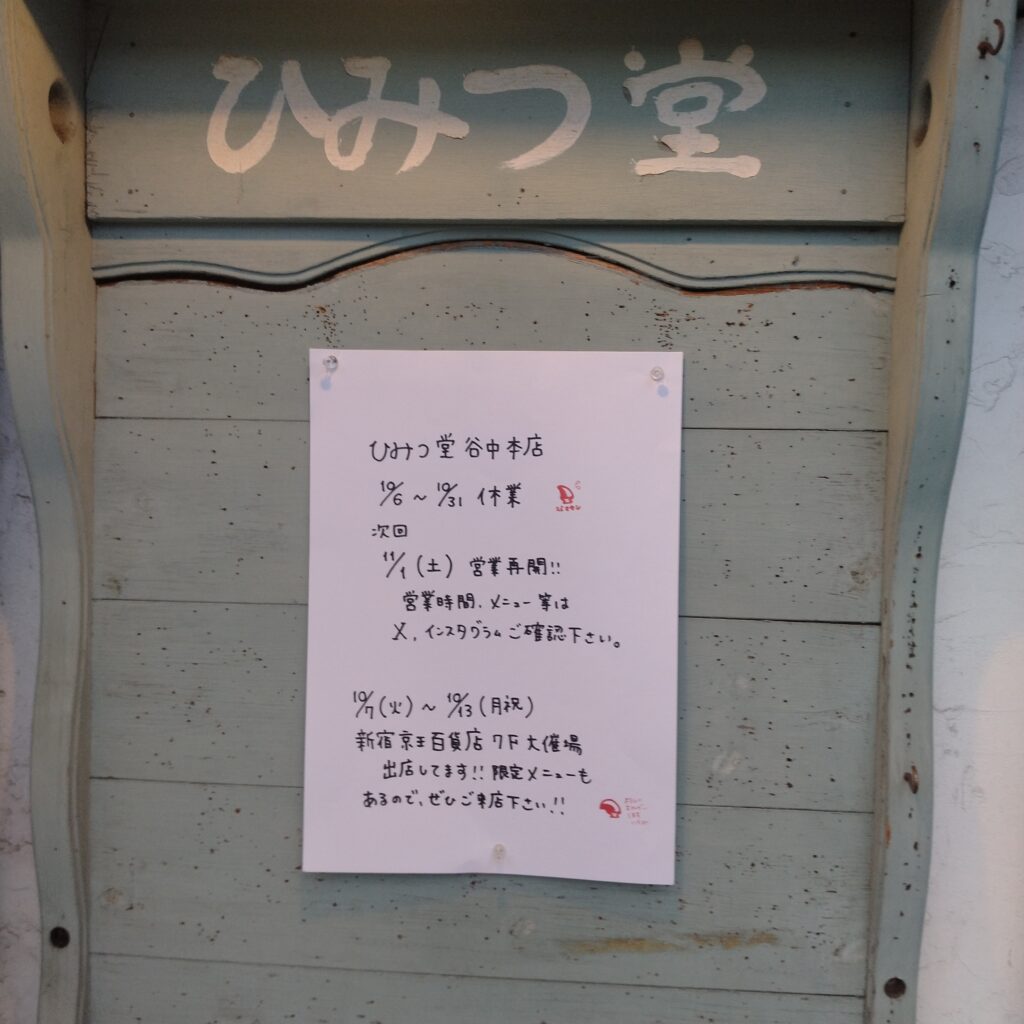 ひみつ堂
ひみつ堂 谷中本店
10/6 ~ 10/31 休業
次回
11/1 (土) 営業再開!!
営業時間、メニュー等は
X、インスタグラムご確認下さい。
10/7(火) ~ 10/13(月祝)
新宿京王百貨店 7F 大催場
出店してます!! 限定メニューも
あるので、ぜひご来店下さい!!